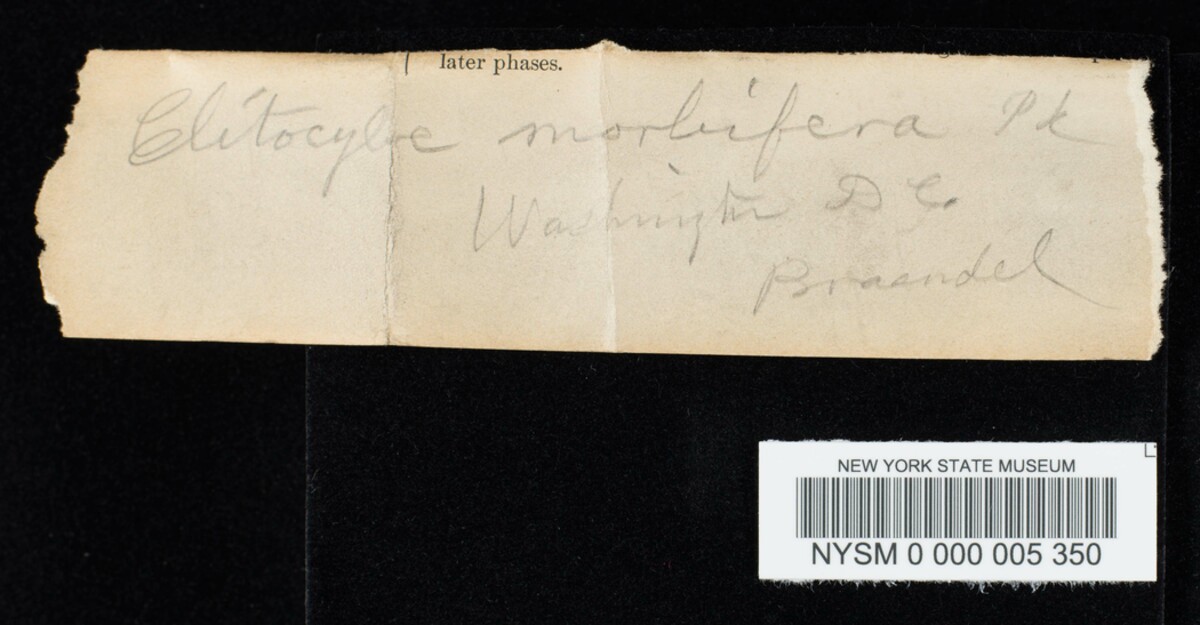 later phases.
Clitocybe morbifera Pk
Washington D C.
Braendel
NEW YORK STATE MUSEUM
NYSM 0 000 005 350